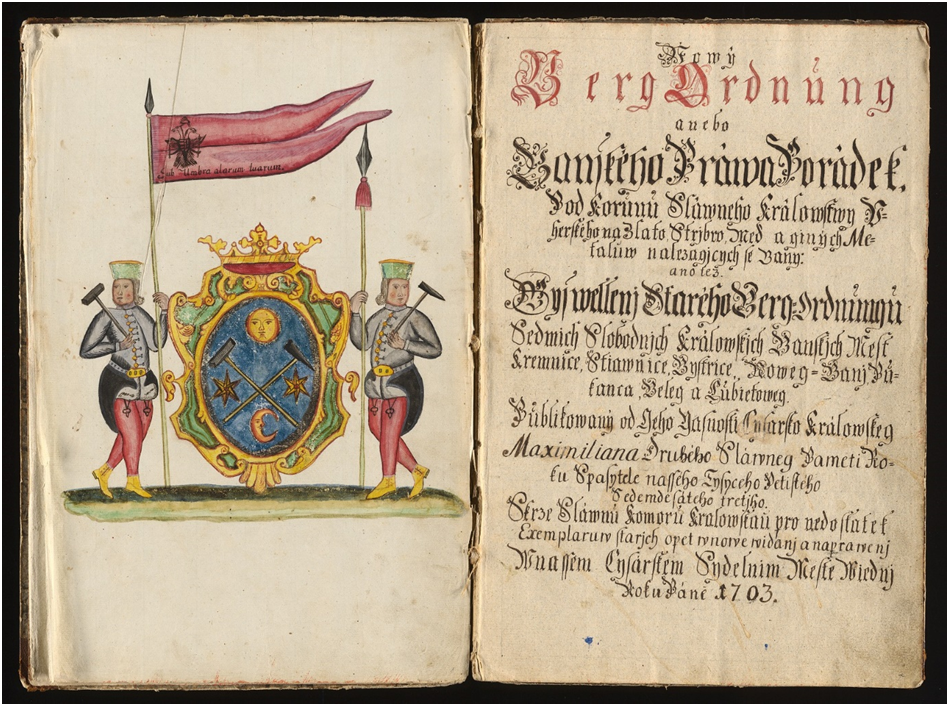 Sub Umbra alarum tuarum.
Nowý
Berg Ordnúng
anebo
Banského Práwa Porádek.
Pod Korúnú Sláwneho Králowstwy V-
herského na Zlato, Strjbro, Med a giných Me-
taluw nalezagjcych se Bany:
ano též.
Wyswetlenj Starého Berg-Ordnúngú
Sedmich Slobodnjch Králowskjch Banskjch Mest
Kremnice, Stiawnice, Bystrice, Noweg-Banj Pú-
kanca, Beleg a Lúbietoweg.
Públikowaný od Geho Yasnosti Cysarsko Králowskeg
Maximiliana Druhého Sláwneg Pameti Ro-
ku Spasytele nasseho Tysyceho Petistého
Sedemdesáteho tretjho.
Skrze Sláwnú Komorú Kralowskáú pro nedostatek
Exemplaruw starjch opet wnowe widanj a naprawenj
W nassem Cysárskem Sydelnim Meste Wiednj
Roku Páně 1703.